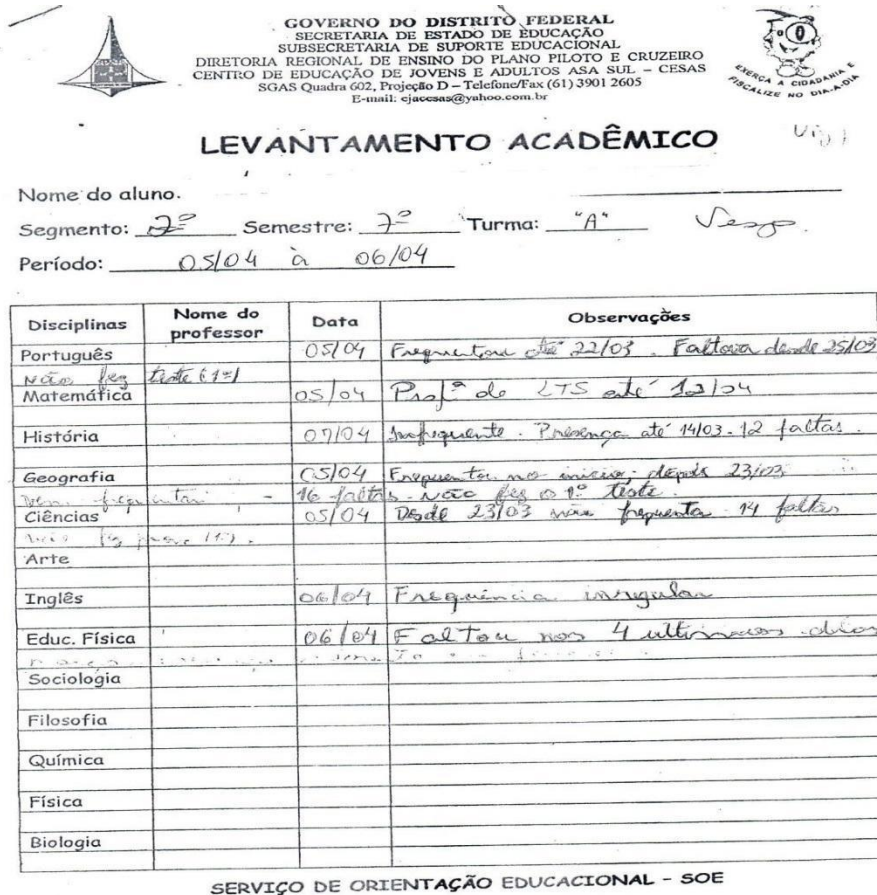 GOVERNO DO DISTRITO FEDERAL
SECRETARIA DE ESTADO DE EDUCAÇÃO
SUBSECRETARIA DE SUPORTE EDUCACIONAL
DIRETORIA REGIONAL DE ENSINO DO PLANO PILOTO E CRUZEIRO
CENTRO DE EDUCAÇÃO DE JOVENS E ADULTOS ASA SUL – CESAS
SGAS Quadra 602, Projeção D – Telefone/Fax (61) 3901 2605
E-mail: ejacesas@yahoo.com.br
EXERÇA A CIDADANIA E
FISCALIZE NO DIA-A-DIA
LEVANTAMENTO ACADÊMICO
Nome do aluno.
Segmento: 2º Semestre: 7º Turma: "A"
Período: 05/04 à 06/04
Disciplinas Nome do professor Data Observações
Português 05/04 Frequentou até 22/03. Faltou desde 25/03
Não fez teste (1º)
Matemática 05/04 Profª de LTS até 12/04
História 07/04 Infrequente. Presença até 14/03. 12 faltas.
Geografia 05/04 Frequentou no início. depois 23/03
16 faltas. Não fez o 1º teste.
Ciências 05/04 Desde 23/03 não frequenta 14 faltas
Arte
Inglês 06/04 Frequência irregular
Educ. Física 06/04 Faltou nos 4 ultimos dias
Sociologia
Filosofia
Química
Física
Biologia
SERVIÇO DE ORIENTAÇÃO EDUCACIONAL - SOE